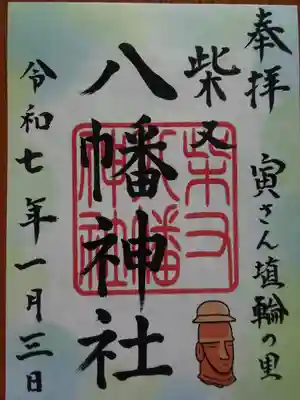 奉拝
寅さん埴輪の里
柴又
八幡神社
柴又
八幡
神社
令和七年一月三日